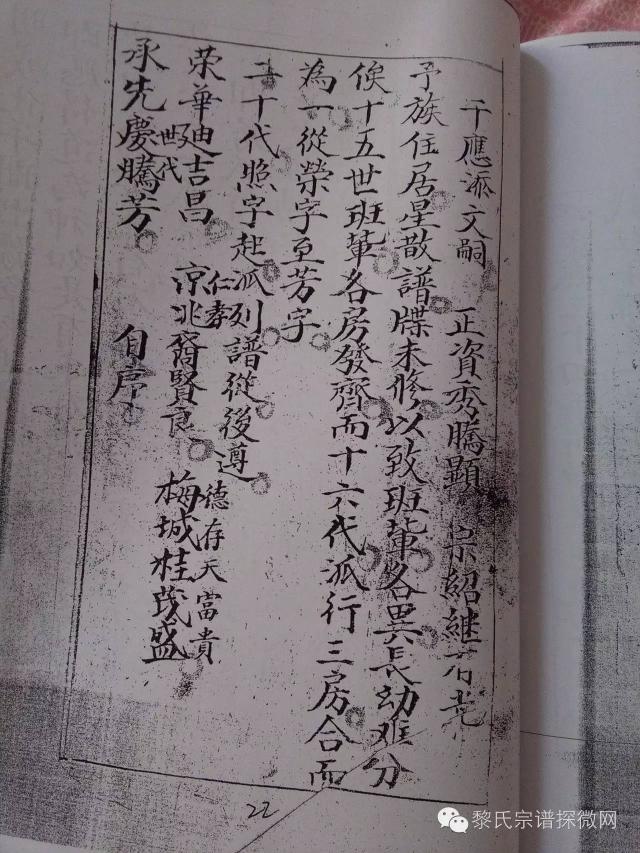 千應添文嗣 正資秀騰顯 宗紹继
予族住居星散譜牒未修以致班輩各異長幼难分
俟十五世班輩各房發齊而十六代派行三房合而
為一從榮字至芳字
二十代照字起派列譜從後遵
荣華迪吉昌 京兆裔賢良 梅城桂茂盛
世代 仁孝 德存天當貴
承先慶騰芳 自序
22
黎氏宗谱探微网